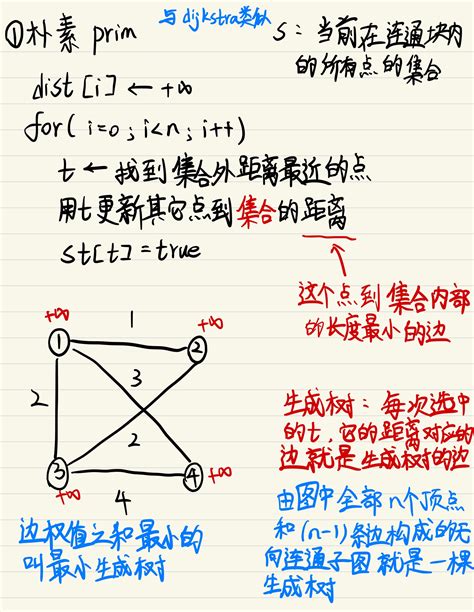 ①朴素 prim
与dijkstra类似
S：当前在连通块内
的所有点的集合
dist[i] ← +∞
for( i=0 ; i<n ; i++)
t ← 找到集合外距离最近的点
用t更新其它点到集合的距离
st[t]=true
这个点到集合内部
的长度最小的边
+∞
1
+∞
①
②
3
2
2
③
④
+∞
+∞
4
生成树：每次选中
的t，它的距离对应的
边就是生成树的边
边权值之和最小的
叫最小生成树
由图中全部n个顶点
和(n-1)条边构成的无
向连通子图就是一棵
生成树